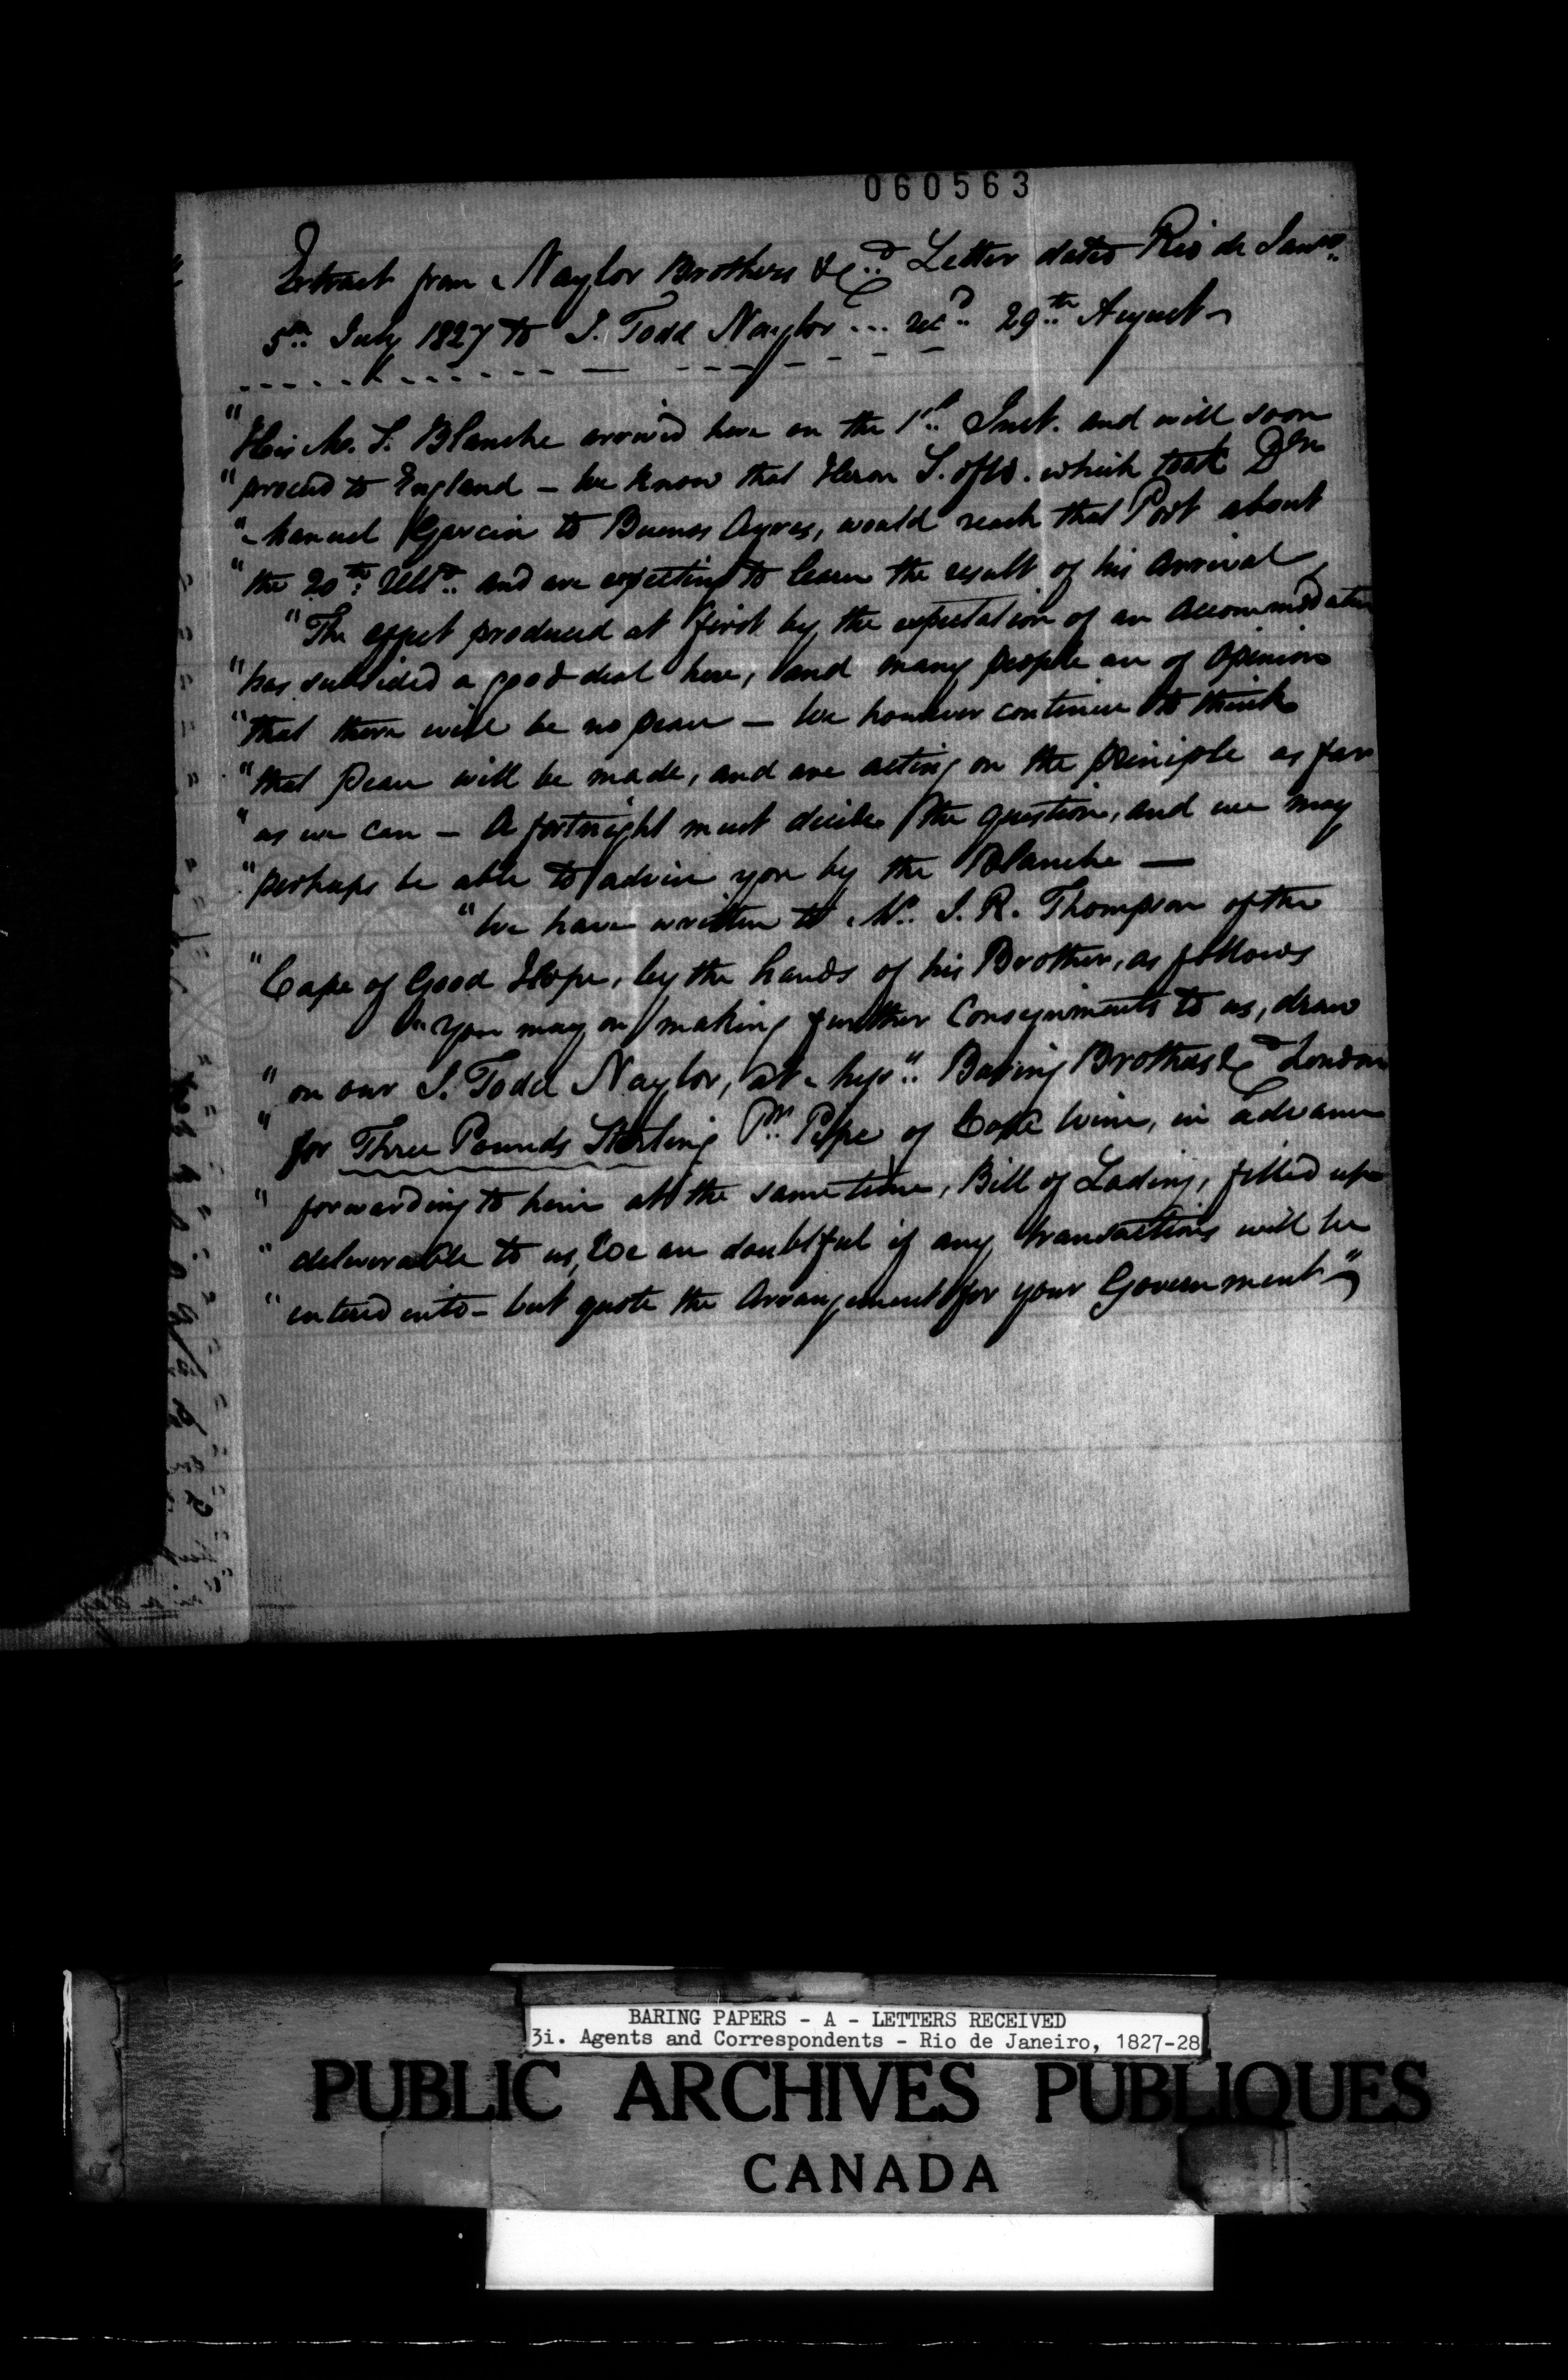 060563
Extract from Naylor Brothers & Co. Letter dated Rio de Janro.
5th July 1827 to J. Todd Naylor ... recd. 29th August
"His M. S. Blanche arrived here on the 1st Inst. and will soon
"proceed to England – We know that Heron S. of W. which took Don
"Manuel Garcia to Buenos Ayres, would reach that Port about
"the 20th Ulto. and are expecting to learn the result of his arrival
"The effect produced at first by the expectation of an accommodation
"has subsided a good deal here, and many people are of opinion
"that there will be no peace – We however continue to think
"that peace will be made, and are acting on the principle as far
"as we can – A fortnight must decide the question, and we may
"perhaps be able to advise you by the Blanche —
"We have written to Mr. J. R. Thompson of the
"Cape of Good Hope, by the hands of his Brother, as follows
"You may on making further Consignments to us, draw
"on our J. Todd Naylor, at Messrs. Baring Brothers & Co London
"for Three Pounds Sterling Pr. Pipe of Cape Wine, in advance
"forwarding to him at the same time, Bill of Lading, filled up
"deliverable to us, We are doubtful if any transactions will be
"entered into – but quote the Arrangement for your Government"
BARING PAPERS - A - LETTERS RECEIVED
3i. Agents and Correspondents - Rio de Janeiro, 1827-28
PUBLIC ARCHIVES PUBLIQUES
CANADA